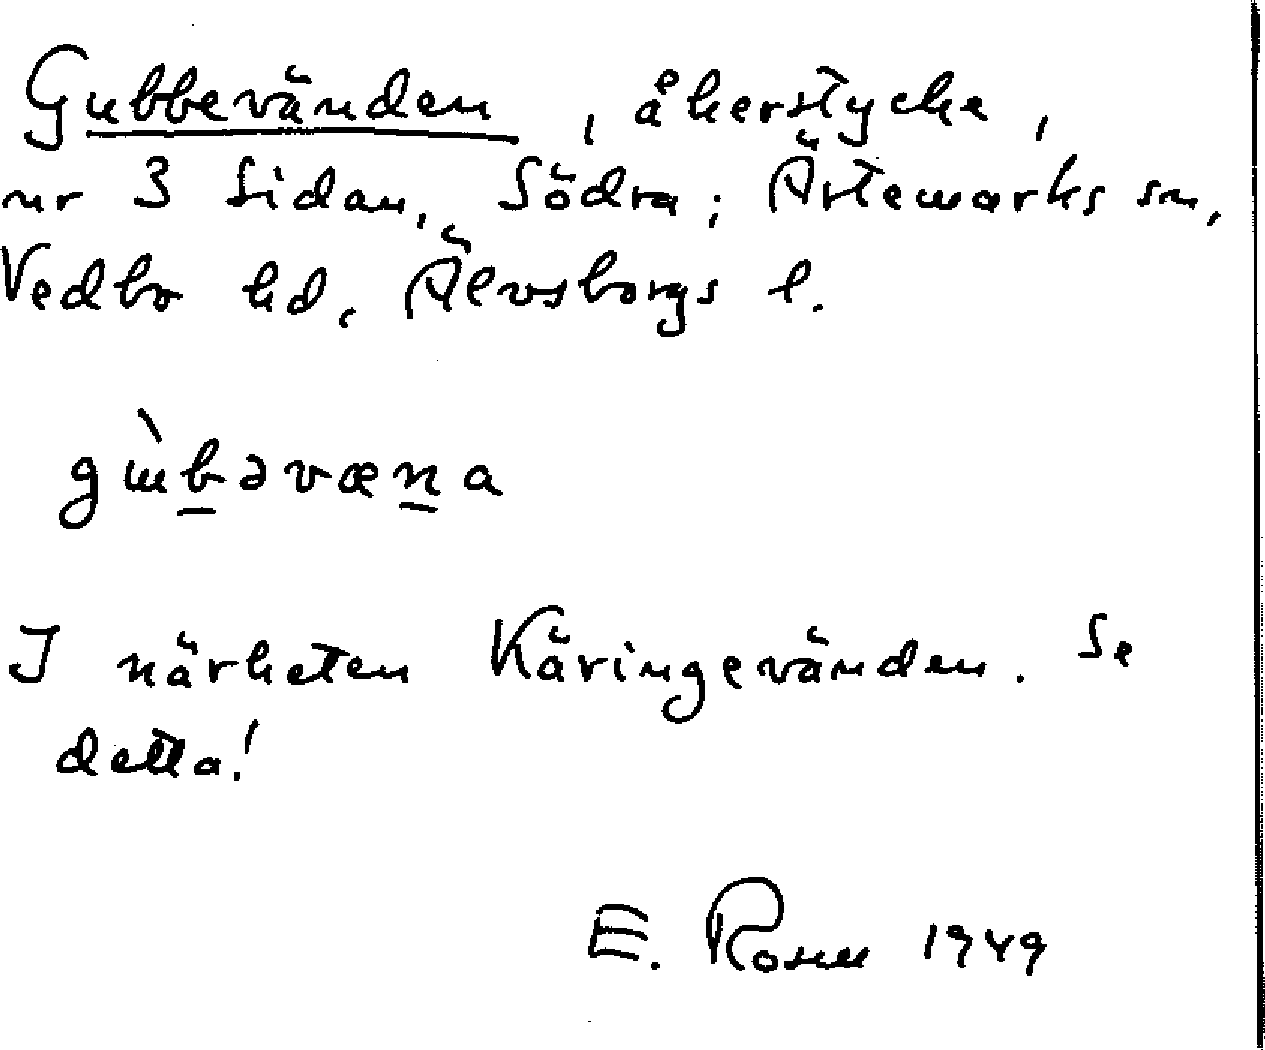 Gubbevänden, åkerstycke,
nr 3 Sidan, Södra; Ärtemarks sn,
Vedbo hd, Älvsborgs l.
gɯ̀bəvæna
I närheten Käringevänden. Se
detta!
E. Rosell 1949